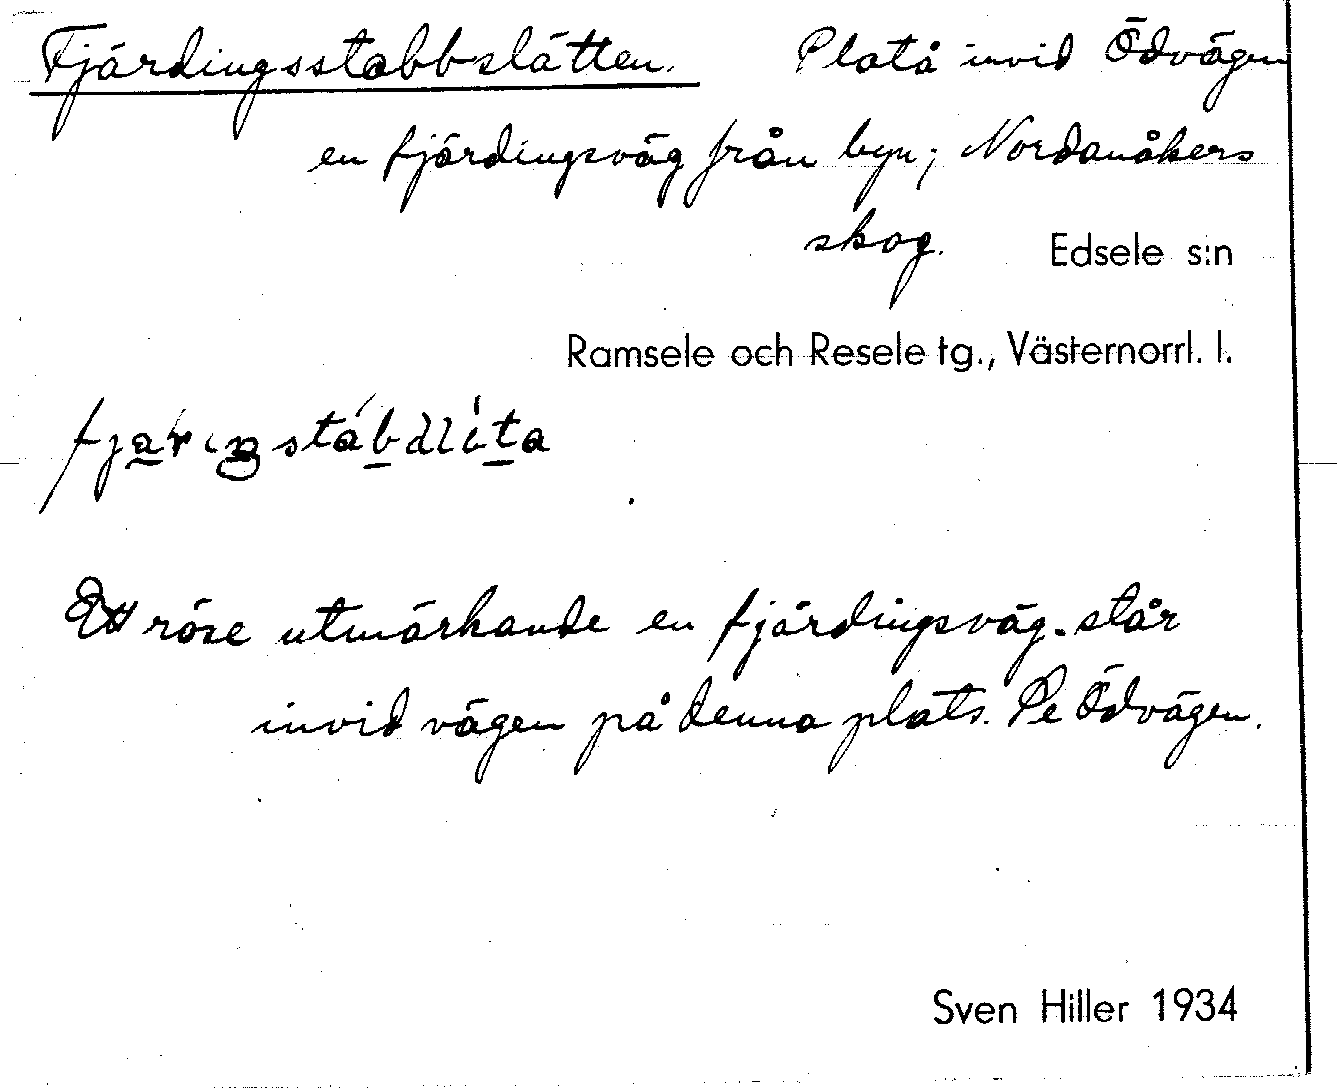 Fjärdingsstabbslätten. Platå invid Ödvägen
en fjärdingsväg från byn; Nordanåkers
skog. Edsele s:n
Ramsele och Resele tg., Västernorrl. l.
Ett röse utmärkande en fjärdingsväg. står
invid vägen på denna plats. Se Ödvägen.
Sven Hiller 1934